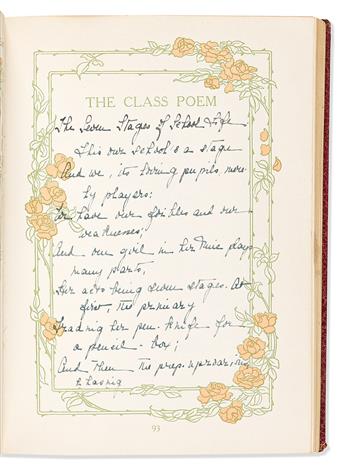 THE CLASS POEM
The Seven Stages of School Life
This our school's a stage
And we, its loving pupils, mere-
ly players:
We have our foibles and our
weaknesses;
And one girl in her time plays
many parts,
Her acts being seven stages. At
first, the primary
Trading her pen-knife for
a pencil-box;
And then the prep.
93